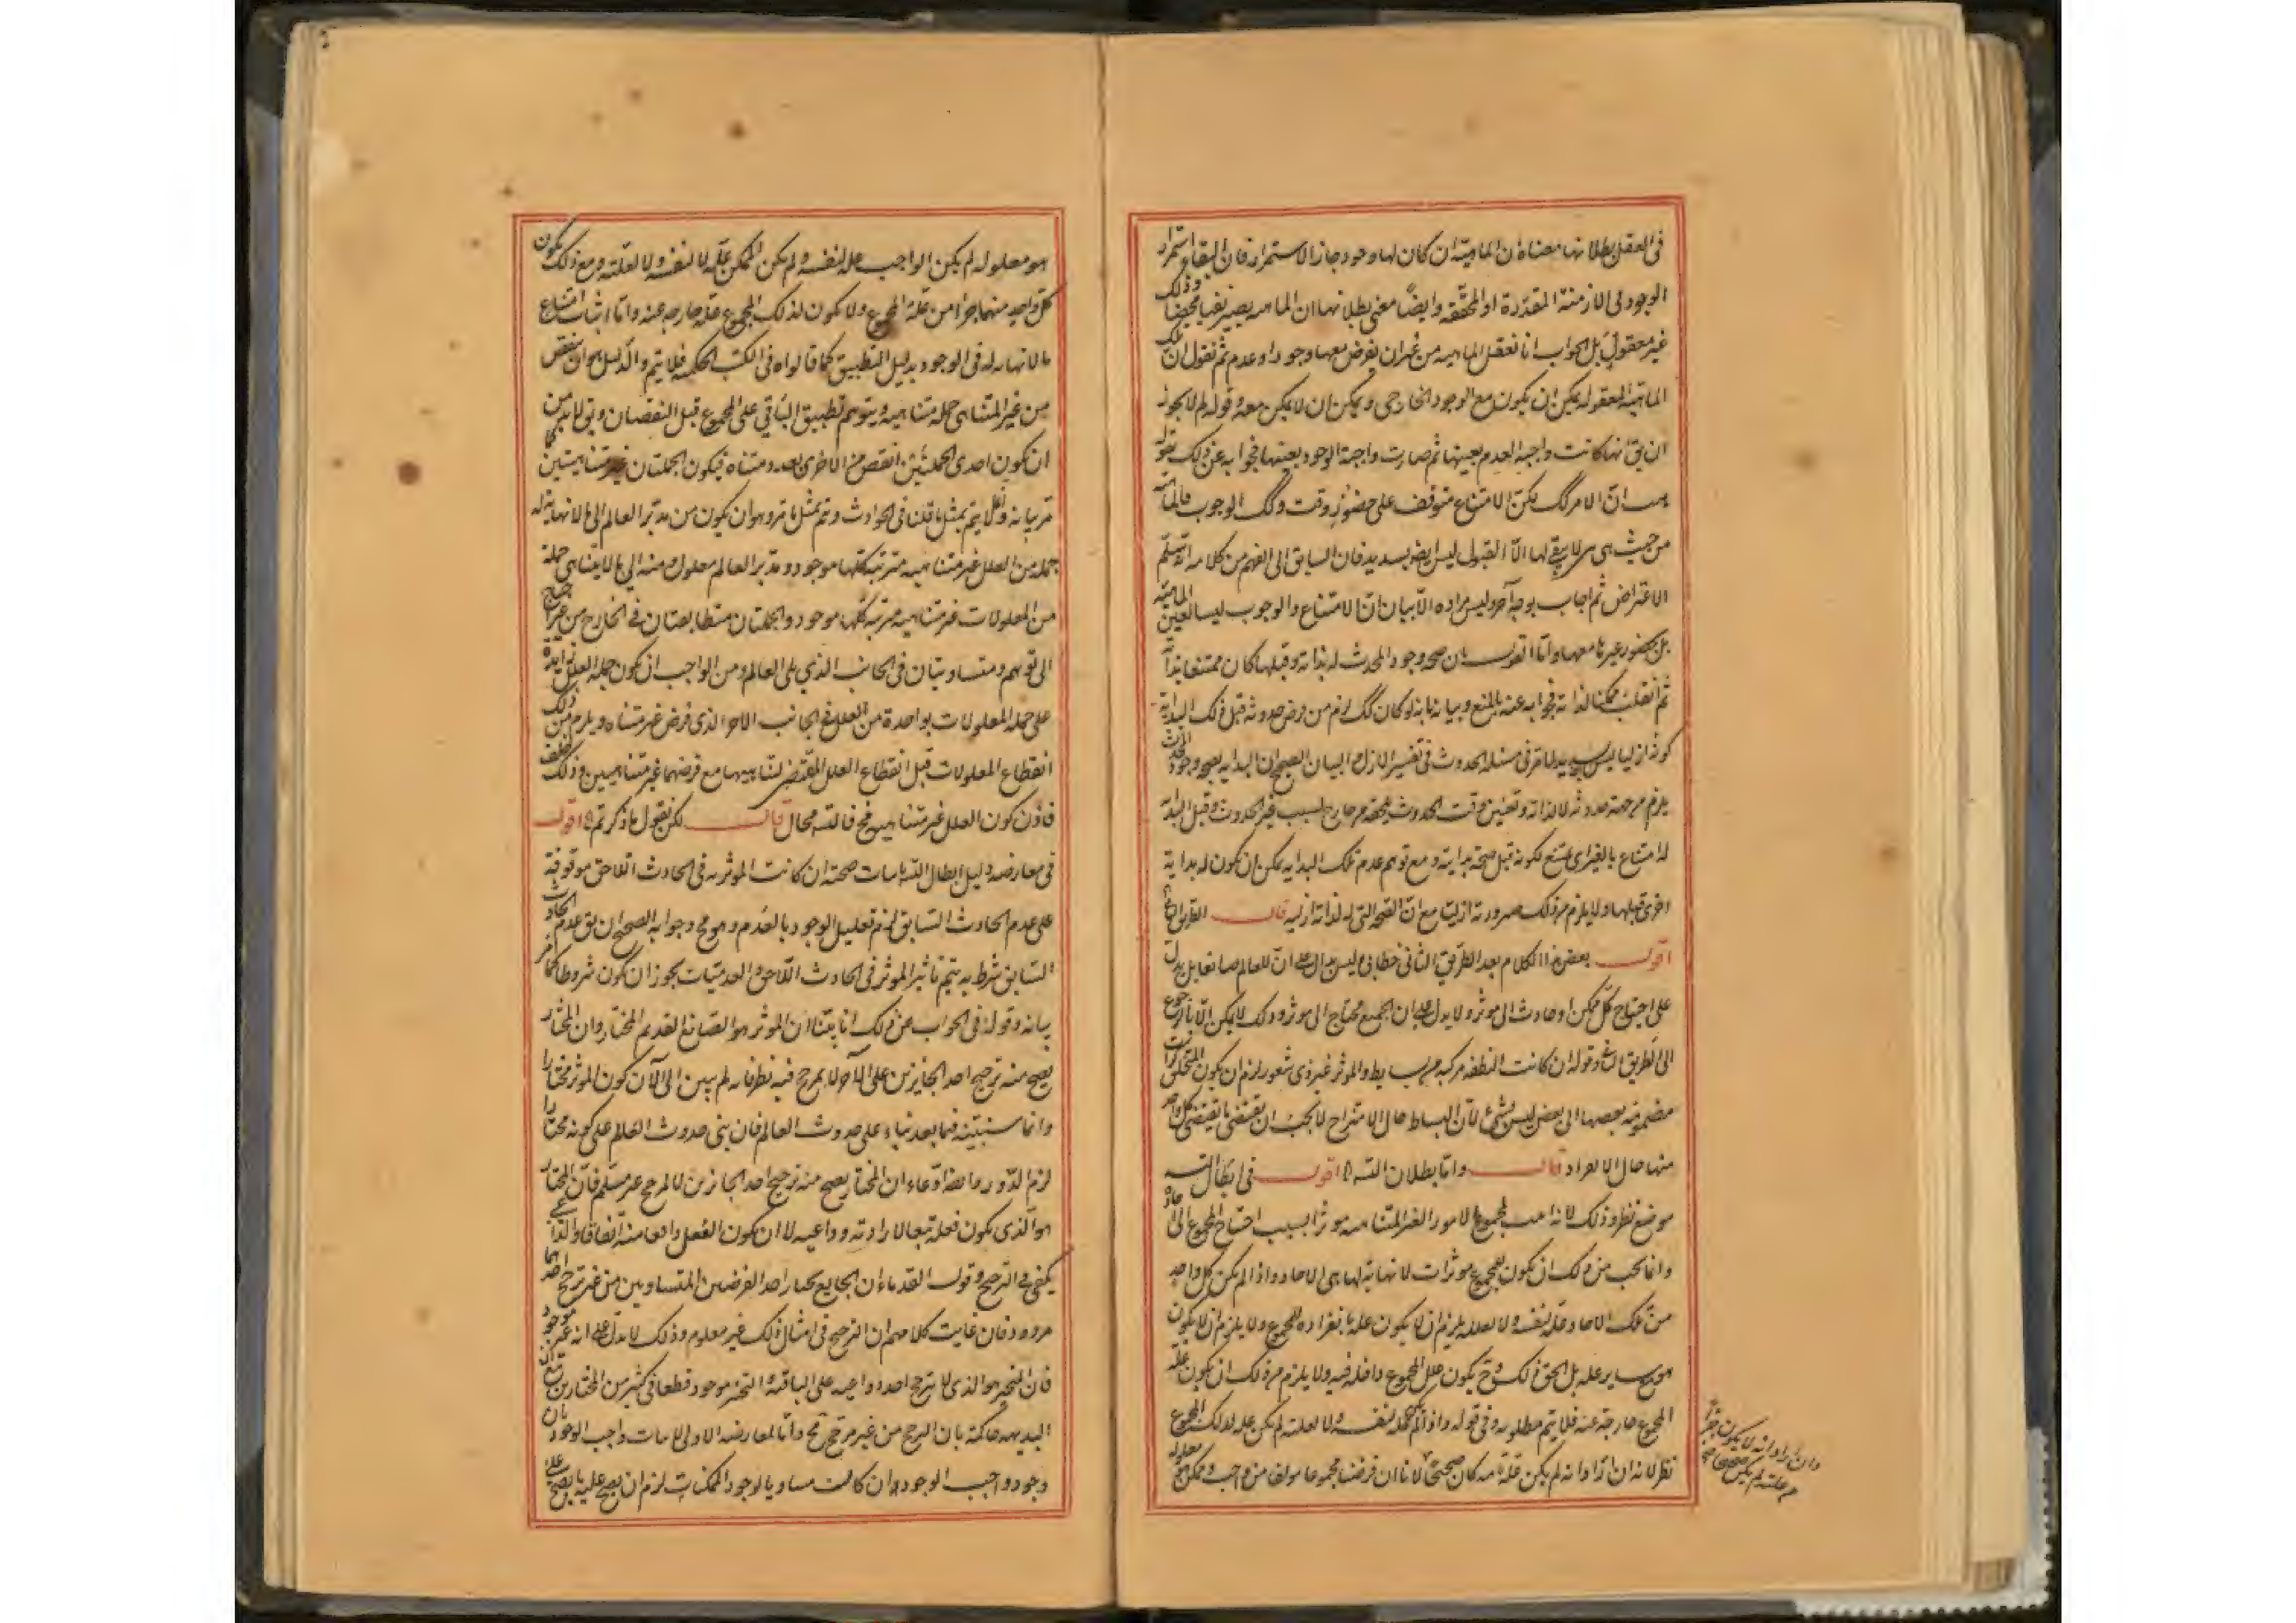 فى العقل بطلانها معناه ان الماهية ان كان لها وجود جاز الاستمرار فان البقاء استمرار
الوجود فى الازمنة المقدرة او المحققة وايضًا معنى بطلانها ان الماهيه يصير نفيا محضا وذلك
غير معقول بل الجواب انا نعقل الماهيه من غير ان يفرض معها وجود او عدم ثم نقول ان تلك
الماهية المعقوله يمكن ان يكون مع الوجود الخارجى ويمكن ان لا يكون معه وقوله لم لا يجوز
ان يق انها كانت واجبة العدم بعينها ثم صارت واجبة الوجود بعينها فجوابه عن ذلك بقوله
هب ان الامر كك لكن الامتناع متوقف على حضور وقت وكك الوجوب فالماهية
من حيث هى هى لا يبقى لها الا القبول ليس ايض بسديد فان السابق الى الفهم من كلامه انه تسلم
الاعتراض ثم اجاب بوجه آخر وليس مراده الا بيان ان الامتناع والوجوب ليسا لعين الماهية
بل بحضور غيرها معها واما القول بان صحه وجود المحدث له بذاته وقبلها كان ممتنعا بذاته
ثم انقلب ممكنا لذاته فجوابه عنه بالمنع وبيانه بانه لو كان كك لزم من فرض حدوثه قبل ذلك البداية
كونه ازليا ليس بسديد لما مر فى مسئله الحدوث فى تفسير الازل والبيان الصحيح ان البدايه بصحه وجود المحدث
يلزم من جهة حدوثه لا لذاته وتعين وقت الحدوث يلحقه من خارج لسبب غير الحدوث وقبل البداية
له امتناع بالغير اى يمتنع لكونه قبل صحة بدايته ومع توهم عدم تلك البدايه يمكن ان يكون له بداية
اخرى قبلها ولا يلزم من ذلك صيرورته ازليا مع ان الصحه التى له لذاته ازليه قال الطريق الثانى
اقول بعض هذا الكلام بعد الطريق الثانى خطابى وليس بدال على ان للعالم صانعا بل يدل
على احتياج كل ممكن او حادث الى موثر ولا يدل على ان الجميع محتاج الى موثر وذلك لا يمكن الا بالرجوع
الى الطريق الثانى وقوله ان كانت النطفه مركبه من بسايط والموثر غير ذى شعور لزم ان يكون المتخلق كرات
مضمومه بعضها الى بعض ليس بشئ لان البسائط حال الامتزاج لا يجب ان يقتضى ما يقتضى كل واحد
منها حال الانفراد قال واما بطلان التسه اقول فى ابطال التسه
موضع نظر وذلك لانه اثبت لمجموع الامور الغير المتناهيه موثرا بسبب احتياج المجموع الى آحاده
وانما يجب من ذلك ان يكون للمجموع موثرات لا نهاية لها هى الاحاد واذا لم يكن كل واحد
من تلك الاحاد علة لنفسه ولا لعلله يلزم ان لا يكون علة بانفراده للمجموع ولا يلزم ان لا يكون
مع سايره علة بل الحق ذلك وح يكون علل المجموع داخلة فيه ولا يلزم من ذلك ان يكون علة
المجموع خارجة عنه فلا يتم مطلوبه وفى قوله واذا لم يكن علة لنفسه ولا لعلته لم يكن علة لذلك المجموع
نظر لانه ان اراد انه لم يكن علة تامه كان صحيحًا لانا ان فرضنا مجموعا مولفا من واجب وممكن هو معلوله
وان اراد انه لا يكون جزءا
من علته لم يكن صحيحا
هو معلوله لم يكن الواجب علة لنفسه ولم يكن الممكن علة لا لنفسه ولا لعلته ومع ذلك يكون
كل واحد منهما جزءا من علة المجموع ولا يكون لذلك المجموع علة خارجه عنه واما اثبات امتناع
ما لا نهايه له فى الوجود بدليل التطبيق كما قالوه فى الكتب الحكميه فلا يتم والدليل هو ان ينقص
من غير المتناهى جمله متناهيه ويتوهم تطبيق الباقى على المجموع قبل النقصان ويق لا بد من
ان يكون احدى الجملتين انقص من الاخرى بعدد متناه فيكون الجملتان متناهيتين كما
مر بيانه وذلك لا يتم بمثل ما قلنا فى الحوادث ويتم بمثل ما مر وهو ان يكون من مدبر العالم الى ما لا نهاية له
جمله من العلل غير متناهيه مترتبة كلها موجود ومدبر العالم معلول ومنه الى ما لا يتناهى جملة
من المعلولات غير متناهيه مرتبة كلها موجود والجملتان متطابقتان فى الخارج من غير احتياج
الى توهم ومتساويتان فى الجانب الذى يلى العالم ومن الواجب ان يكون جملة العلل زايدة
على جملة المعلولات بواحدة من العلل فى الجانب الاخر الذى فرض غير متناه ويلزم من ذلك
انقطاع المعلولات قبل انقطاع العلل المقتضى لتناهيها مع فرضها غير متناهيين وذلك خلف
فاذن كون العلل غير متناهيه مح فالتسه محال قال لكن نقول ما ذكرتم اقول
فى معارضه دليل ابطال التسه باثبات صحته ان كانت الموثريه فى الحادث اللاحق موقوفة
على عدم الحادث السابق لزم تعليل الوجود بالعدم وهو مح وجوابه الصحيح ان يق عدم الحادث
السابق شرط به يتم تاثير الموثر فى الحادث اللاحق والعدميات يجوز ان يكون شروطا كما مر
بيانه وقوله فى الجواب عن ذلك انا بينا ان الموثر هو الصانع القديم المختار وان المختار
يصح منه ترجيح احد الجايزين على الاخر لا لمرجح فيه نظر فانه لم يبين الى الآن كون الموثر مختارا
وانما سنبينه فيما بعد بناء على حدوث العالم فان بنى حدوث العالم على كونه مختارا
لزم الدور وايضا ادعاء ان المختار يصح منه ترجيح احد الجائزين لا لمرجح غير مسلم فان المختار
هو الذى يكون فعله تبعا لارادته وداعيه لا ان يكون الفعل واقعا منه اتفاقا والداعى
يكفى فى الترجيح وقول القدماء ان الجايع يختار احد القرصين المتساويين من غير ترجيح احدهما
مردود فان غايت كلامهم ان الترجيح فى امثال ذلك غير معلوم وذلك لا يدل على انه غير موجود
فان المتحير هو الذى لا يترجح احد دواعيه على الباقية والتحير موجود قطعا فى كثير من المختارين مع ان
البديهه حاكمة بان الترجح من غير مرجح مح واما المعارضه الاولى لاثبات واجب الوجود بان
وجود واجب الوجود ان كانت مساويا لوجود الممكنات لزم ان يصح عليه ما يصح على